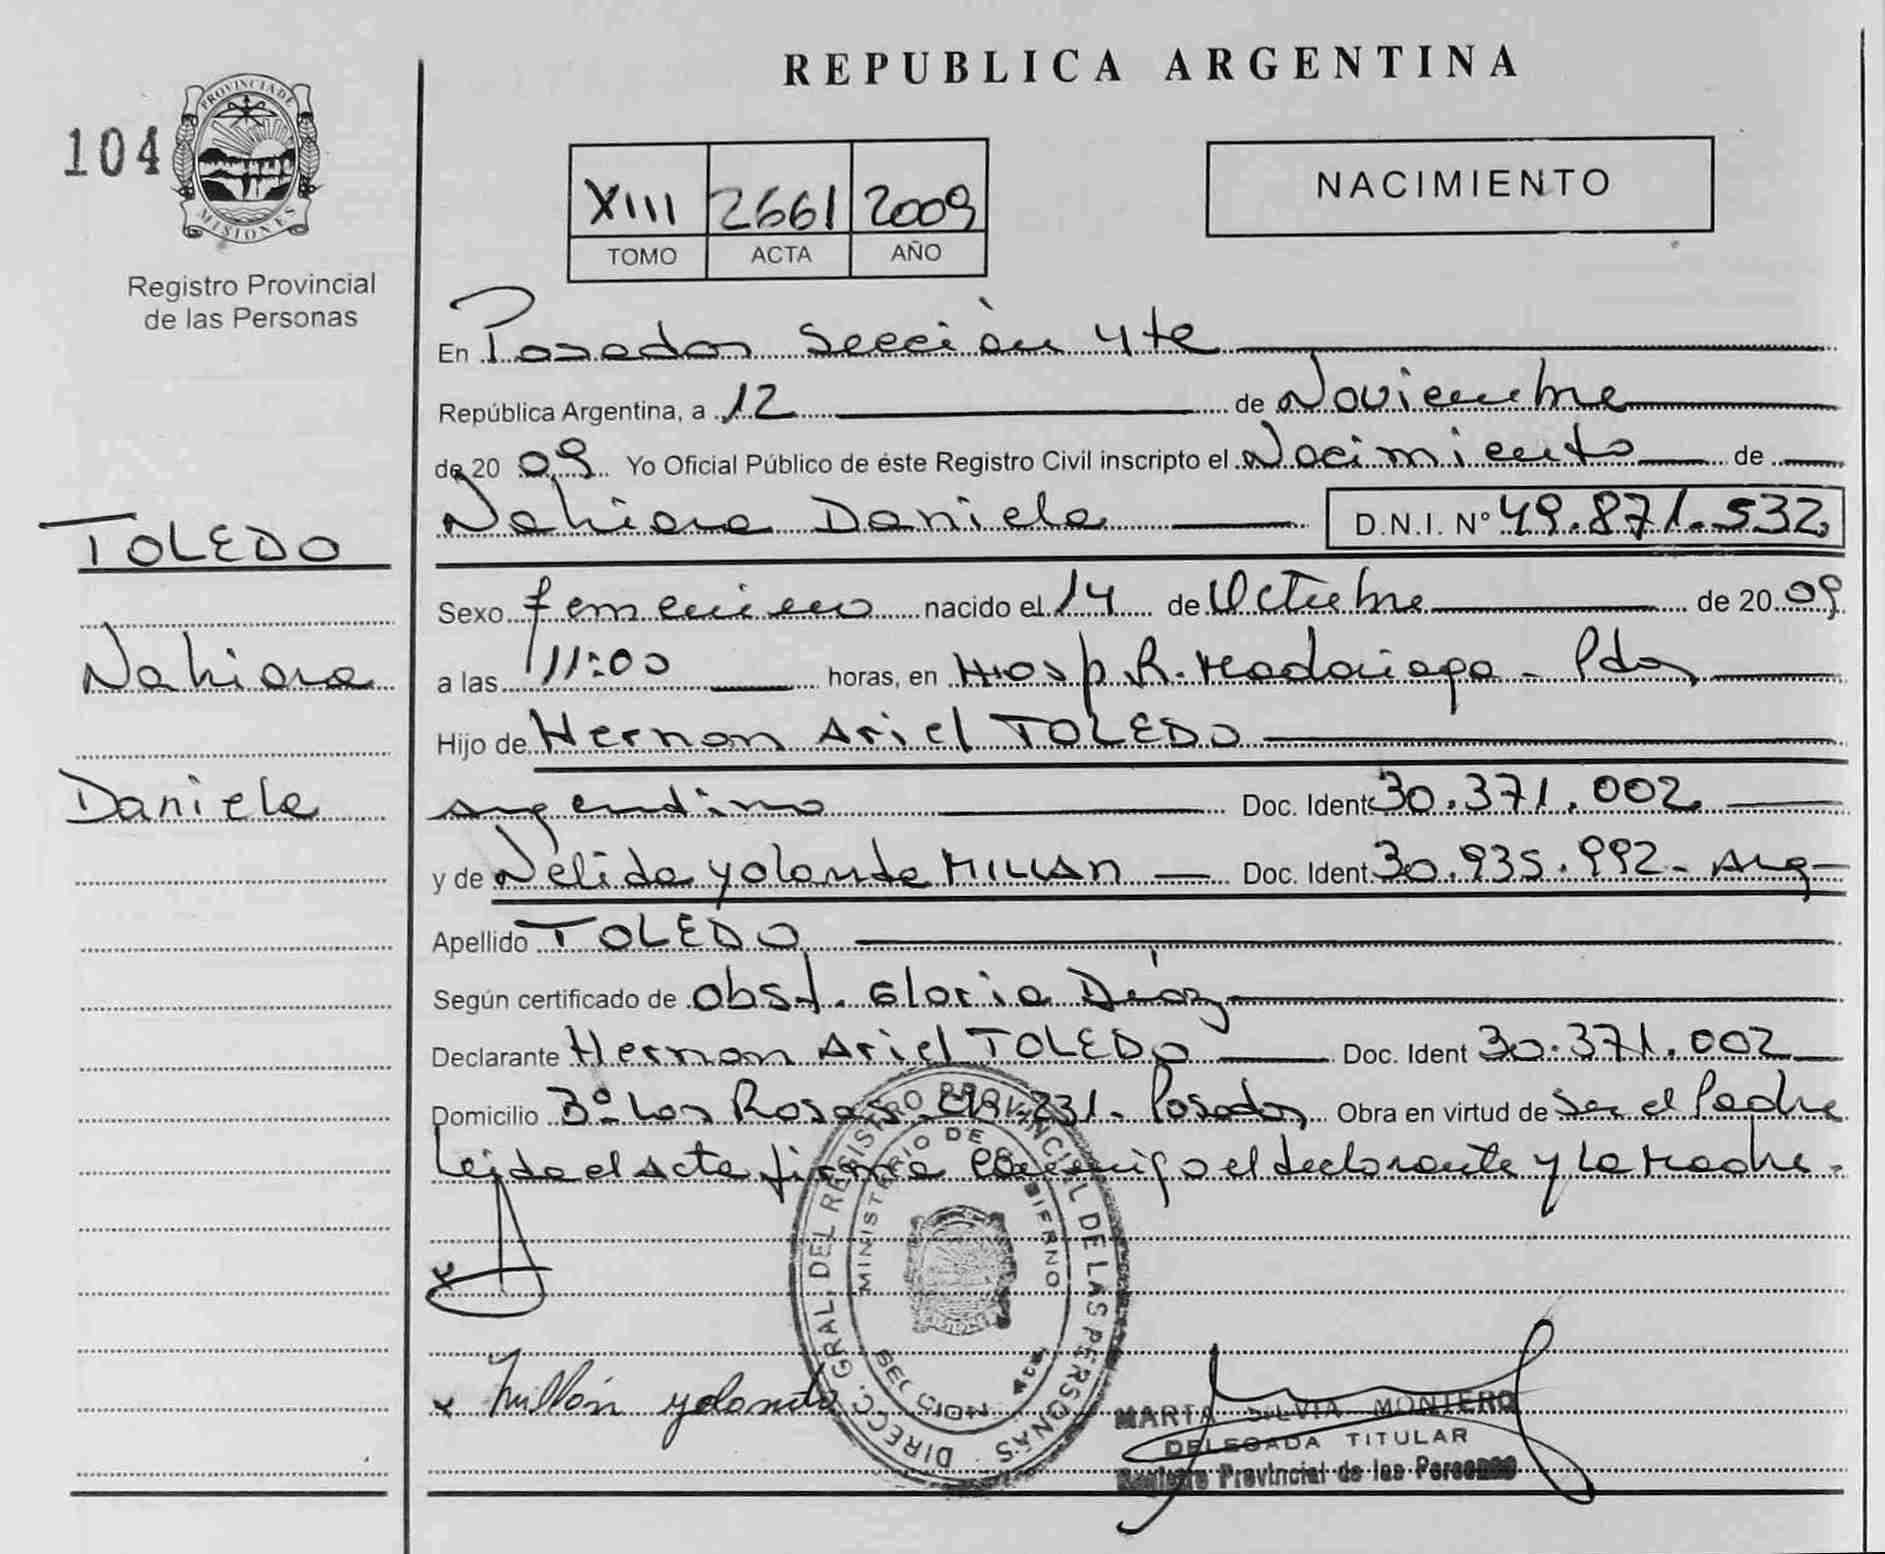 REPUBLICA ARGENTINA
104
PROVINCIA DE
MISIONES
Registro Provincial
de las Personas
XIII 2661 2009
TOMO ACTA AÑO
NACIMIENTO
En Posadas Sección 4te
República Argentina, a 12 de Noviembre
de 20 09 Yo Oficial Público de éste Registro Civil inscripto el Nacimiento de
Nahiara Daniela D.N.I. N° 49.871.532
TOLEDO
Nahiara
Daniela
Sexo femenino nacido el 14 de Octubre de 20 09
a las 11:00 horas, en Hosp. R. Madariaga - Pdas
Hijo de Hernan Ariel TOLEDO
Argentino Doc. Ident 30.371.002
y de Nélida Yolanda MILLAN Doc. Ident 30.935.992 - Arg
Apellido TOLEDO
Según certificado de Obst. Gloria Díaz
Declarante Hernan Ariel TOLEDO Doc. Ident 30.371.002
Domicilio Bº Las Rosas 231 - Posadas Obra en virtud de Ser el Padre
Leida el Acta firma conmigo el declarante y la Madre.
DIRECC. GRAL. DEL REGISTRO PROVINCIAL DE LAS PERSONAS
MINISTERIO DE GOBIERNO
SECCION 4ta
MISIONES
x
x Millán Yolanda
MARTA SILVIA MONTERO
DELEGADA TITULAR
Registro Provincial de las Personas